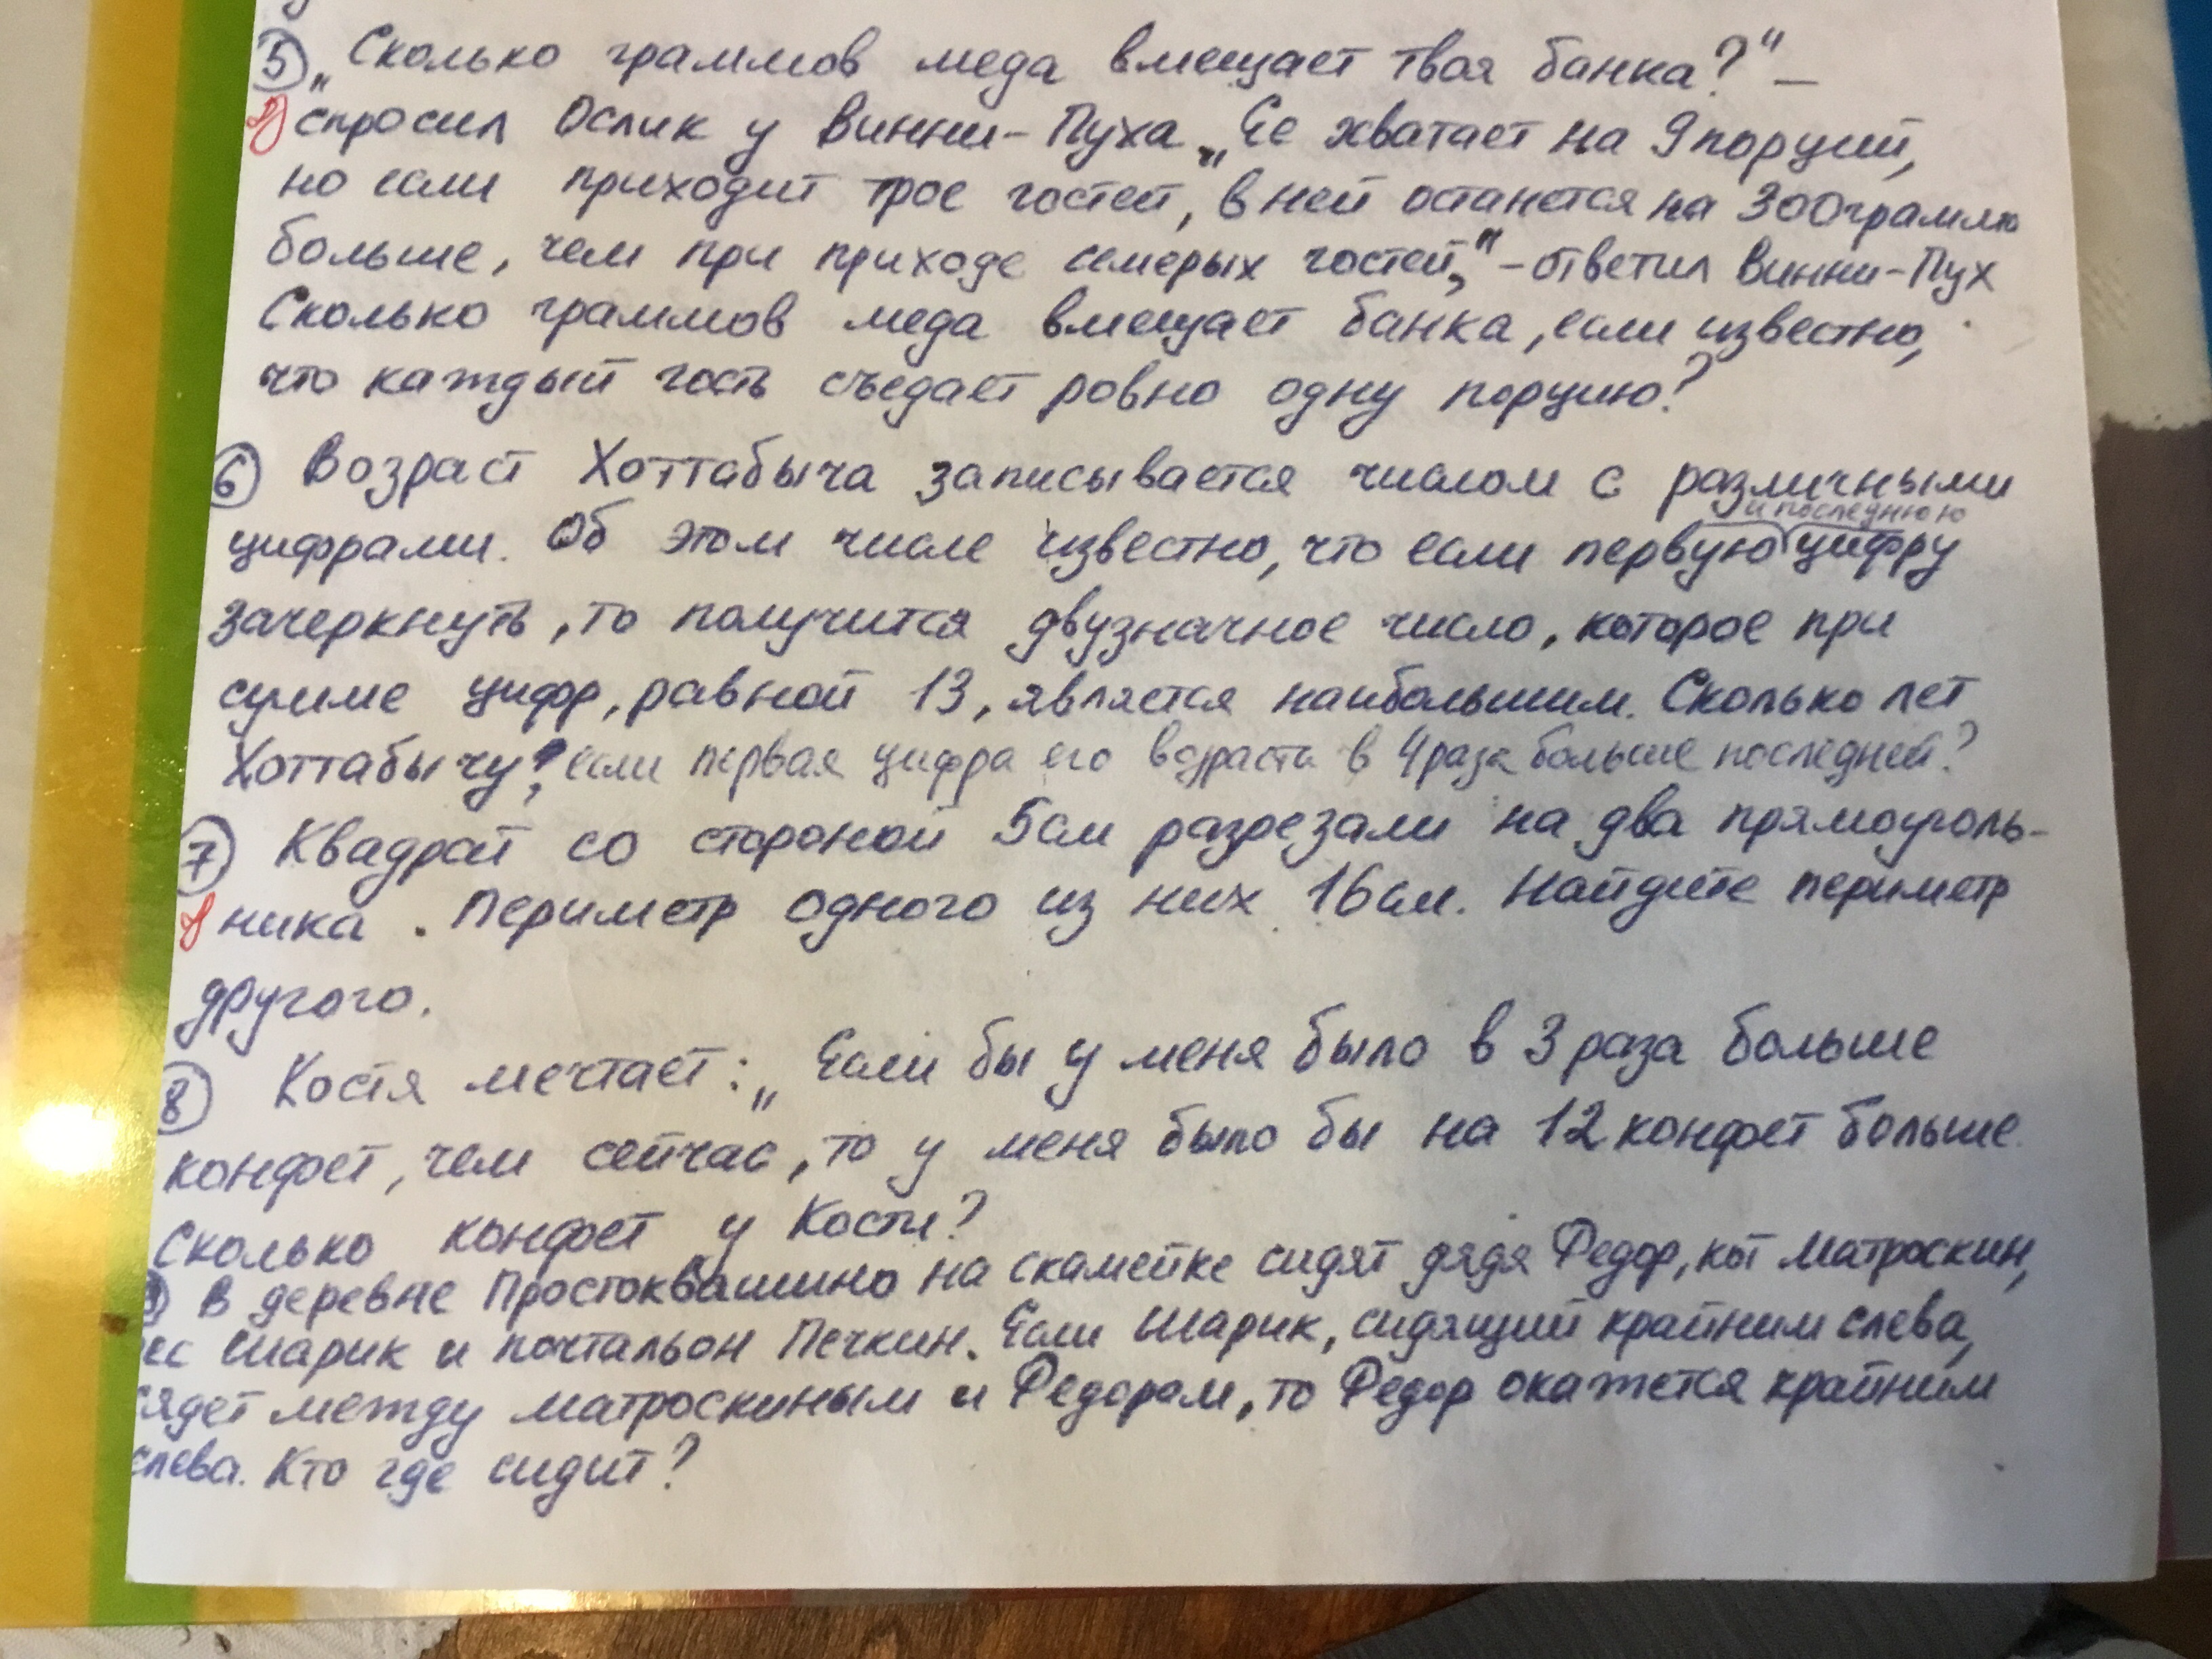 5 „Сколько граммов меда вмещает твоя банка?" –
спросил Ослик у Винни-Пуха. „Ее хватает на 9 порций,
но если приходит трое гостей, в ней останется на 300 граммов
больше, чем при приходе семерых гостей," – ответил Винни-Пух
Сколько граммов меда вмещает банка, если известно,
что каждый гость съедает ровно одну порцию?
6 Возраст Хоттабыча записывается числом с различными
и последнюю
цифрами. Об этом числе известно, что если первую цифру
зачеркнуть, то получится двузначное число, которое при
сумме цифр, равной 13, является наибольшим. Сколько лет
Хоттабычу, если первая цифра его возраста в 4 раза больше последней?
7 Квадрат со стороной 5 см разрезали на два прямоуголь-
ника. Периметр одного из них 16 см. Найдите периметр
другого.
8 Костя мечтает: „Если бы у меня было в 3 раза больше
конфет, чем сейчас, то у меня было бы на 12 конфет больше.
Сколько конфет у Кости?
В деревне Простоквашино на скамейке сидят дядя Федор, кот Матроскин,
ес Шарик и почтальон Печкин. Если Шарик, сидящий крайним слева,
сядет между Матроскиным и Федором, то Федор окажется крайним
слева. Кто где сидит?